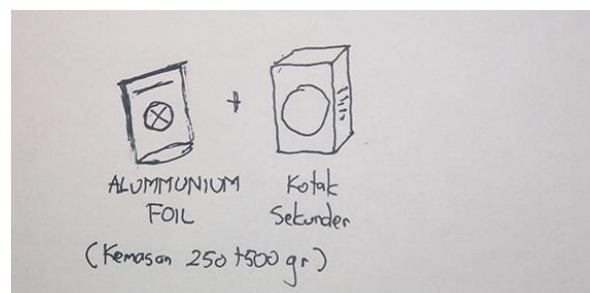 ALUMMUNIUM
FOIL
Kotak
Sekunder
(Kemasan 250+500 gr)